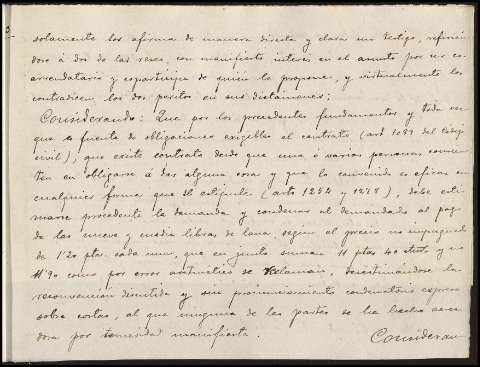 solamente los afirma de manera directa y clara un testigo, refirién
dose á dos de las reses, con manifiesto interés en el asunto por ser co-
arrendatario y copartícipe de quien lo propone, y virtualmente los
contradicen los dos peritos en sus dictámenes;
Considerando: Que por los precedentes fundamentos y toda vez
que es fuente de obligaciones exigibles el contrato (artº 1089 del Código
civil), que existe contrato desde que una ó varias personas consien
ten en obligarse á dar alguna cosa y que lo convenido es eficaz en
cualquier forma que se estipule (artos 1254 y 1278), debe esti
marse procedente la demanda y condenar al demandado al pago
de las nueve y media libras de lana, según el precio no impugnado
de 1'20 ptas. cada una, que en junto suman 11 ptas 40 cts y no
11'90 como por error aritmético se reclaman, desestimándose la
reconvención discutida y sin pronunciamiento condenatorio expreso
sobre costas, al que ninguna de las partes se ha hecho acree
dora por temeridad manifiesta.
Consideran